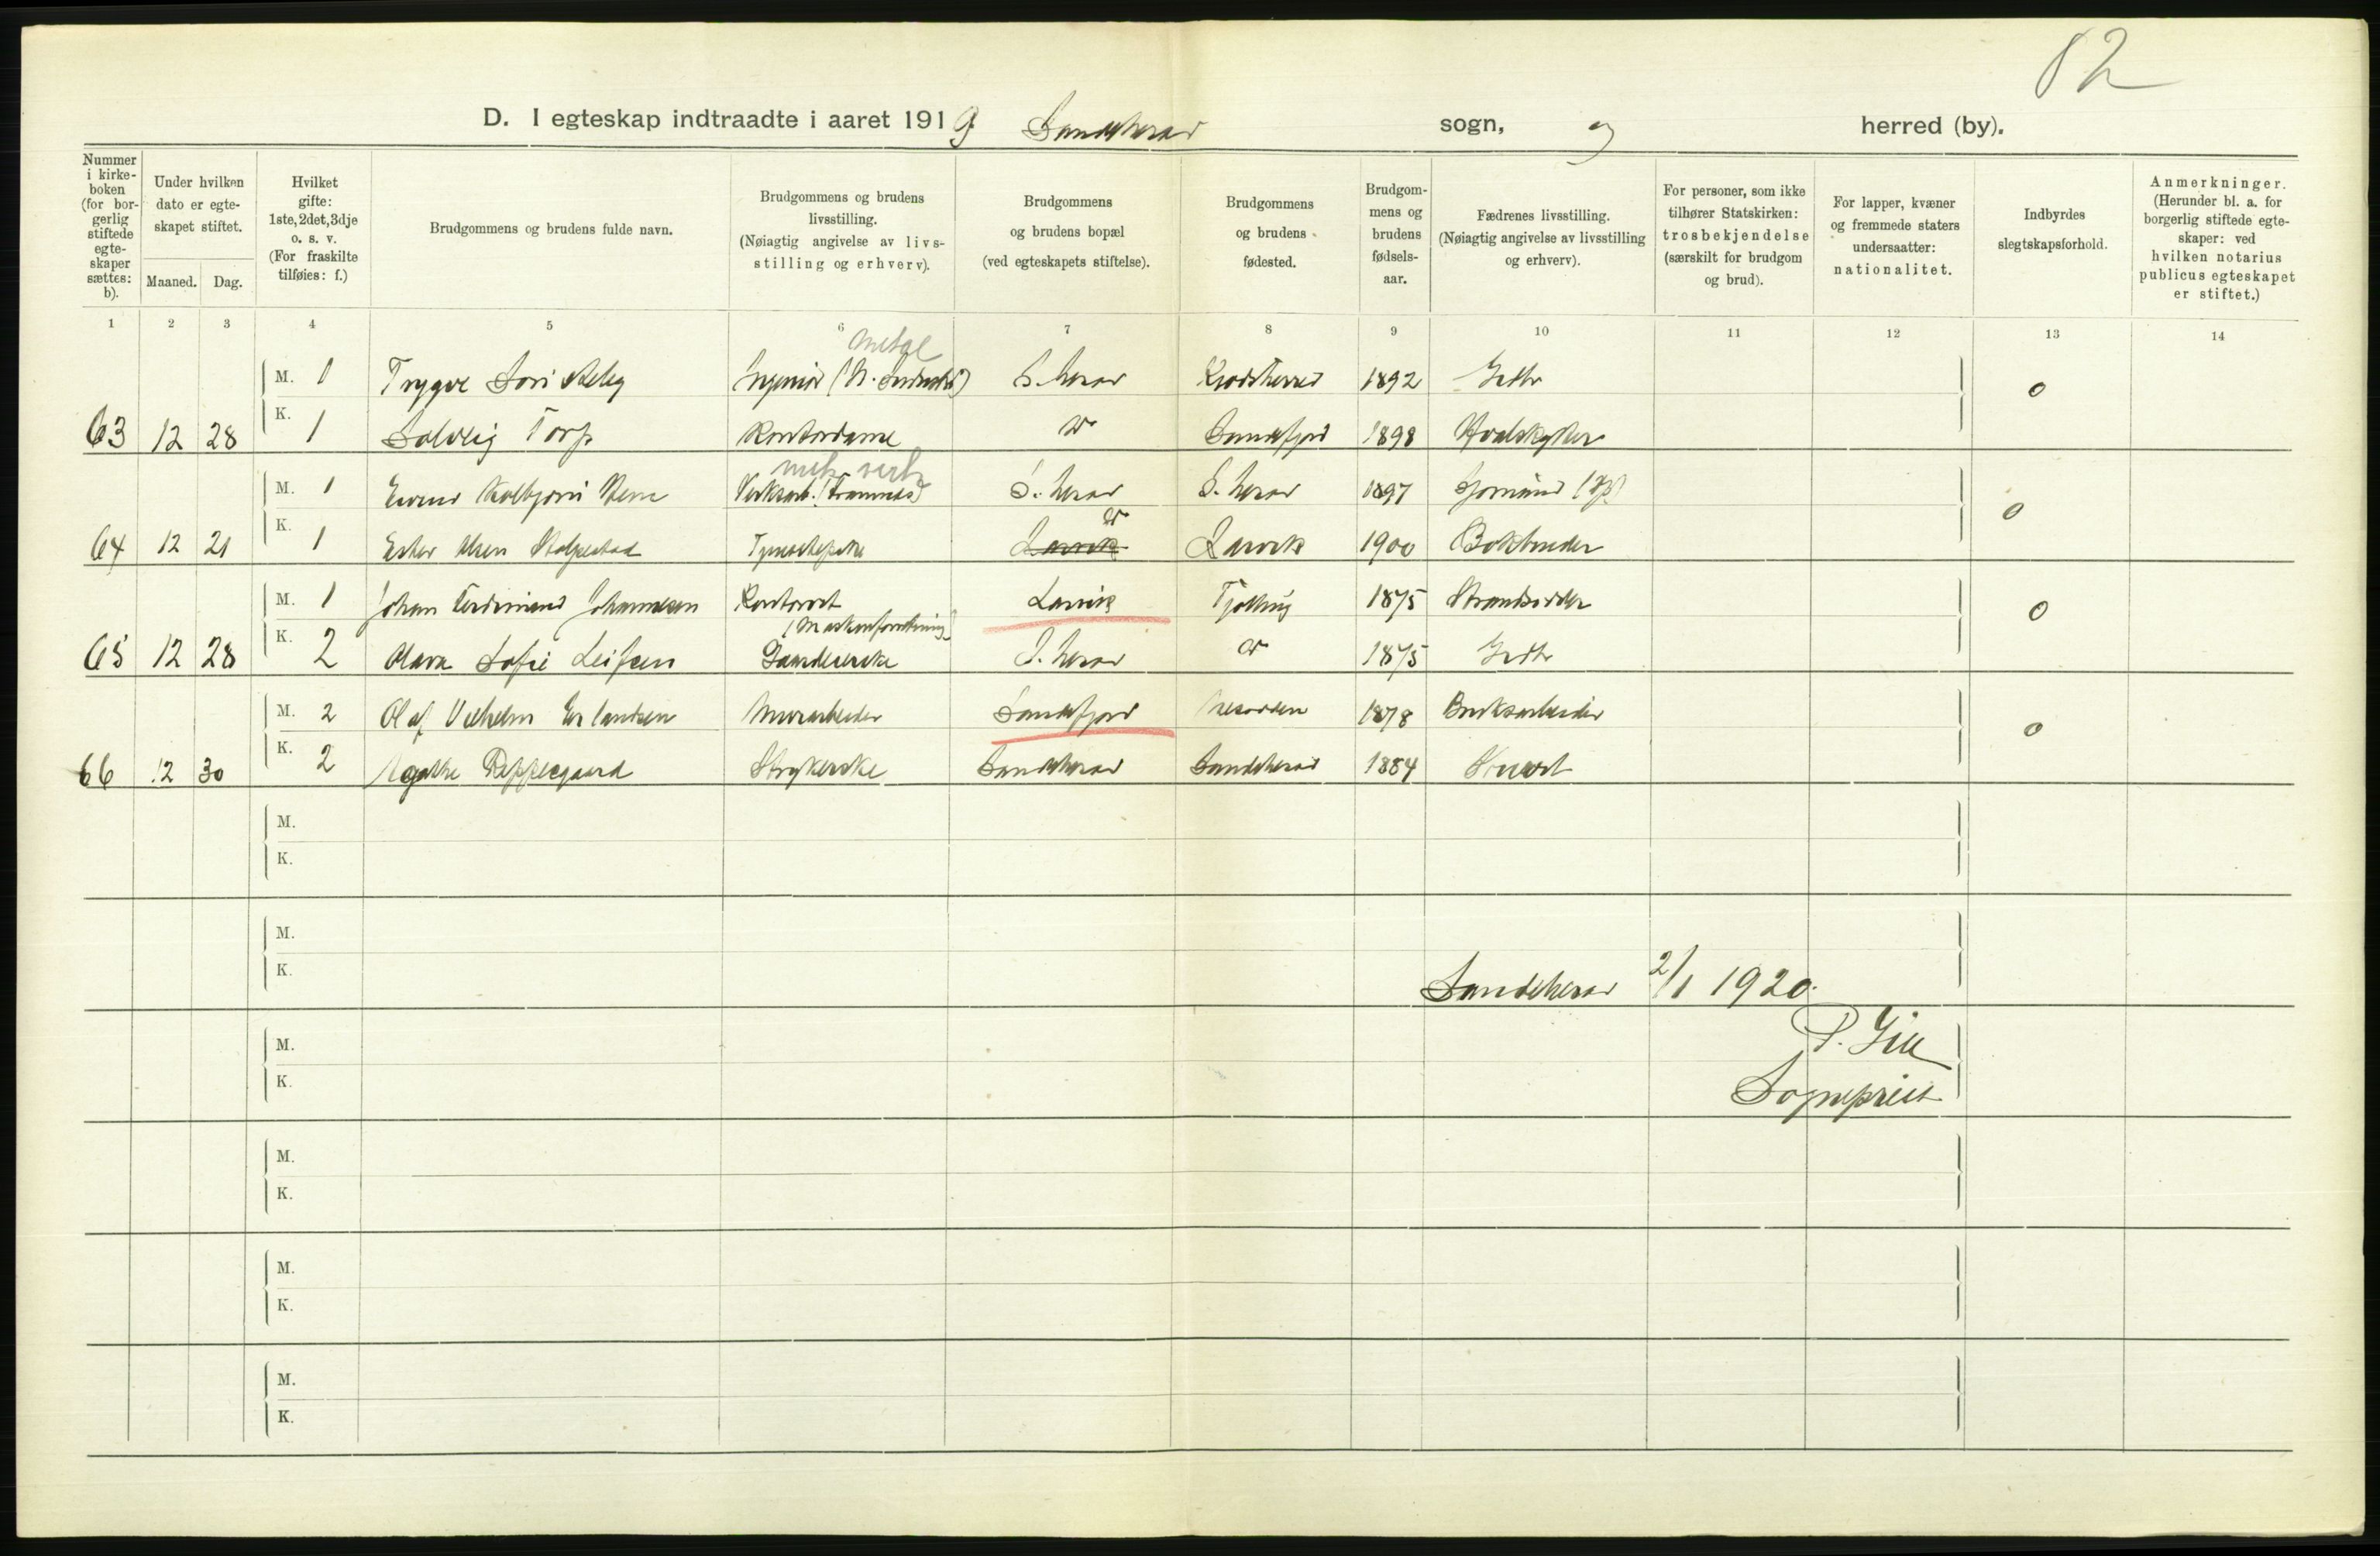 82
D. I egteskap indtraadte i aaret 1919 Sandeherad sogn, og herred (by).
Nummer i kirke-boken (for bor-gerlig stiftede egte-skaper sættes: b).
Under hvilken dato er egte-skapet stiftet.
Maaned. Dag.
Hvilket gifte: 1ste, 2det, 3dje o. s. v. (For fraskilte tilføies: f.)
Brudgommens og brudens fulde navn.
Brudgommens og brudens livsstilling. (Nøiagtig angivelse av livs-stilling og erhverv).
Brudgommens og brudens bopæl (ved egteskapets stiftelse).
Brudgommens og brudens fødested.
Brudgom-mens og brudens fødsels-aar.
Fædrenes livsstilling. (Nøiagtig angivelse av livsstilling og erhverv).
For personer, som ikke tilhører Statskirken: trosbekjendelse (særskilt for brudgom og brud).
For lapper, kvæner og fremmede staters undersaatter: nationalitet.
Indbyrdes slegtskapsforhold.
Anmerkninger. (Herunder bl. a. for borgerlig stiftede egte-skaper: ved hvilken notarius publicus egteskapet er stiftet.)
1 2 3 4 5 6 7 8 9 10 11 12 13 14
metal
M. 1 Trygve Ingeniør S. herad Krødsherred 1892 Grdbr 0
63 12 28 K. 1 Solveig Torp Kontordame do Sandefjord 1898 Hvalskytter
mek. verk
M. 1 Verksarb. (Framnæs) S. herad S. herad 1897 0
do
64 12 21 K. 1 Ester Olsen Larvik Larvik 1900 Bokbinder
M. 1 Johan Ferdinand Johannesen Kontorist Larvik Tjølling 1875 Strandsidder 0
(Maskinforretning)
65 12 28 K. 2 Olava Sofie Leifsen S. herad do 1875 Grdbr
M. 2 Olaf Vilhelm Erlandsen Murarbeider Sandefjord 1878 Bruksarbeider 0
66 12 30 K. 2 Agathe Peppesgaard Strykerske Sandeherad Sandeherad 1884
M.
K.
M.
K.
Sandeherad 2/1 1920.
M.
P. Gill
K.
Sogneprest
M.
K.
M.
K.
M.
K.